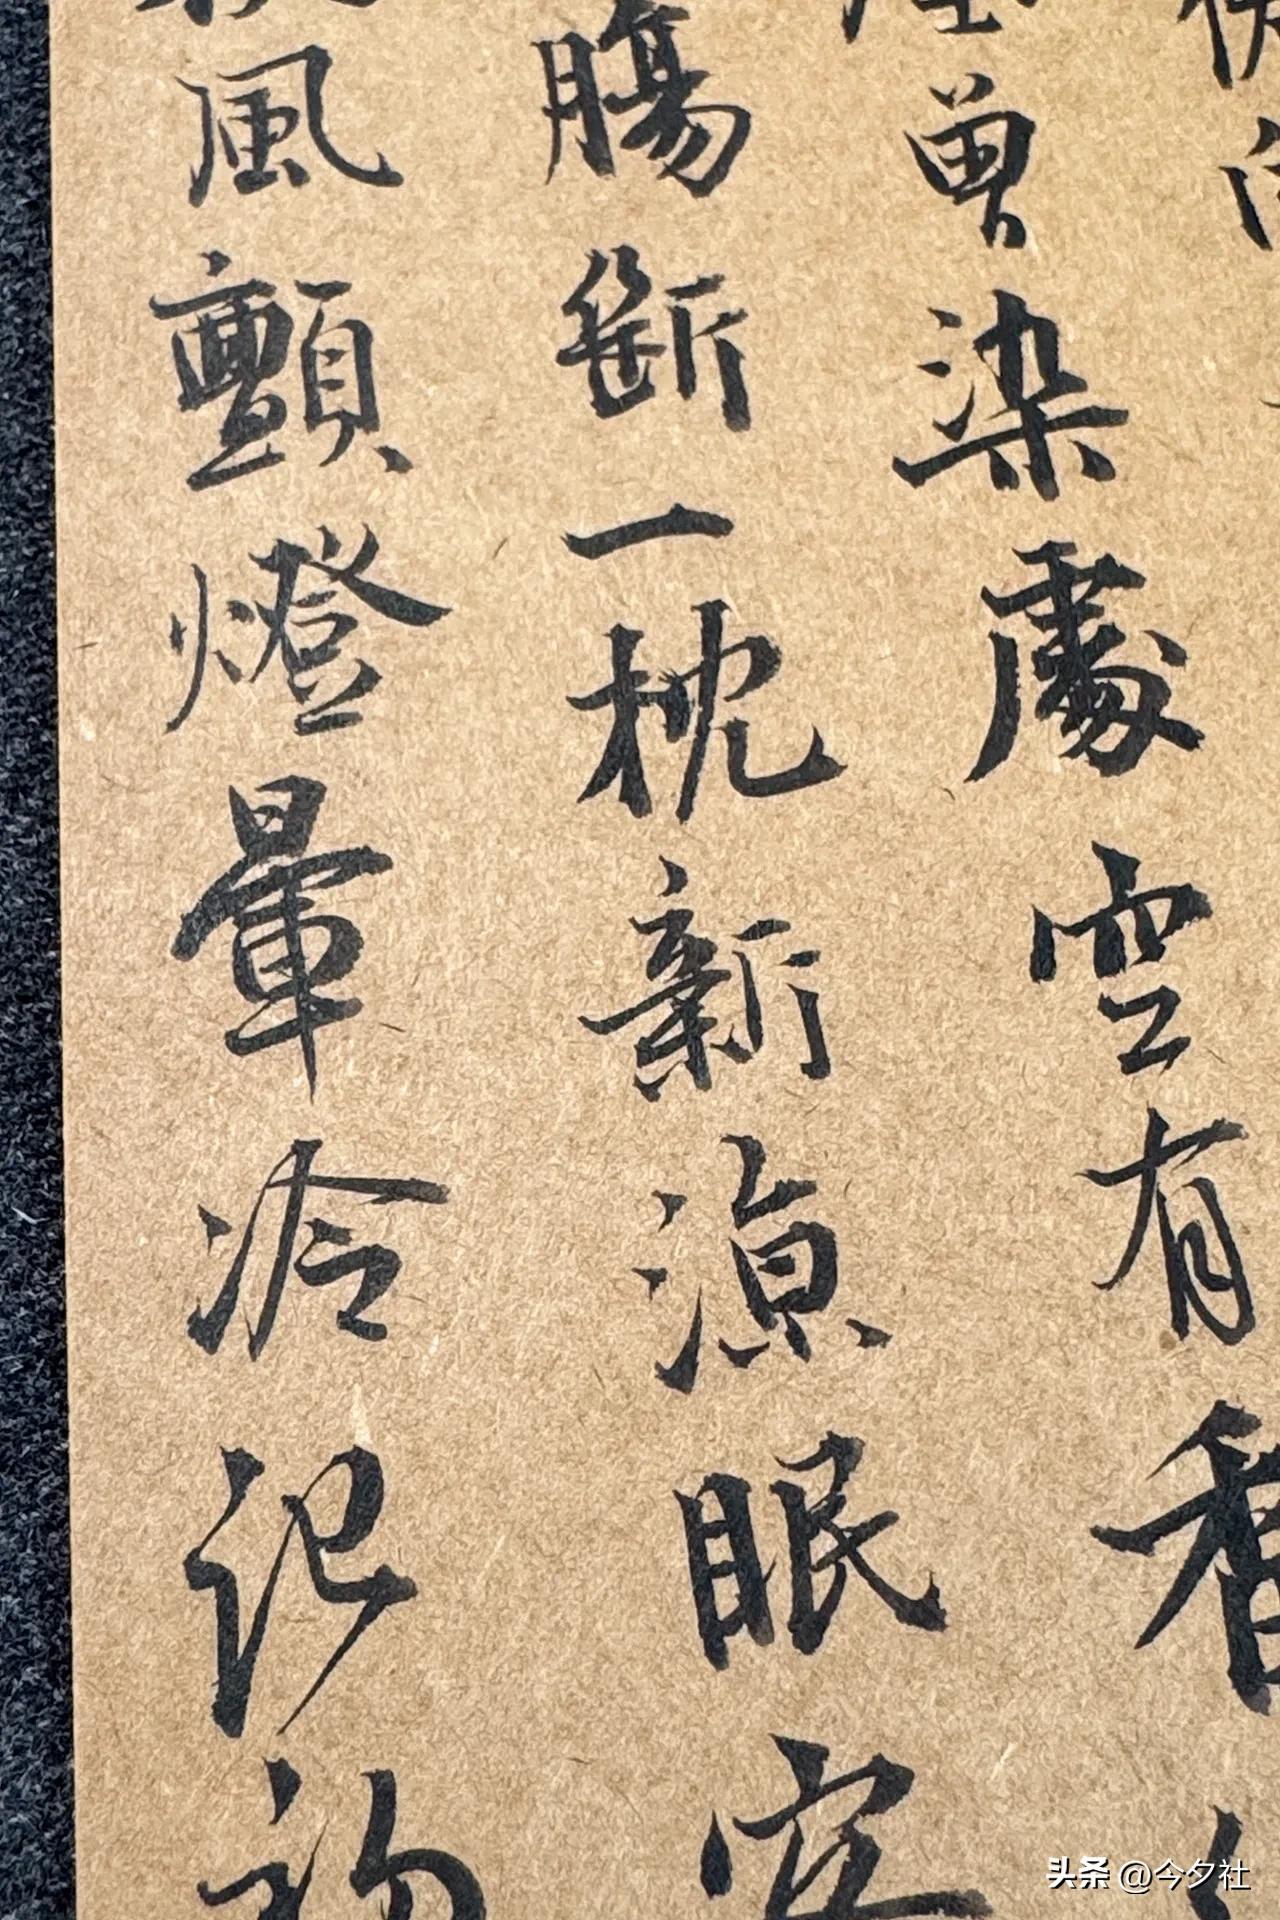 曾染處空有香
腸斷一枕新涼眠宜
風顫燈暈冷記初
头条 @今夕社